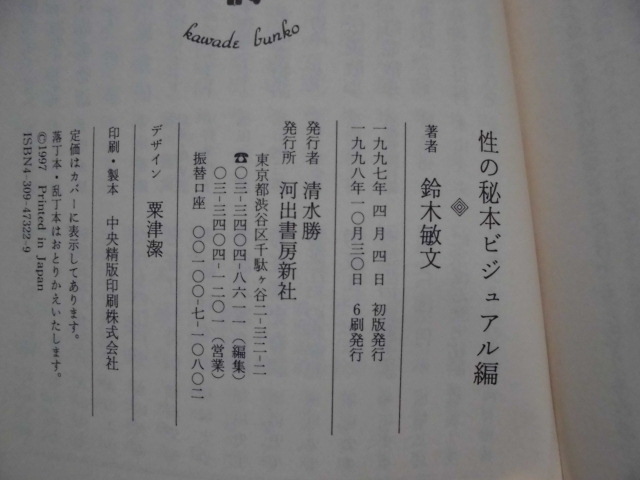 kawade bunko
性の秘本ビジュアル編
著者 鈴木敏文
一九九七年 四月 四日 初版発行
一九九八年一〇月三〇日 6刷発行
発行者 清水勝
発行所 河出書房新社
東京都渋谷区千駄ヶ谷二-三二-二
☎〇三-三四〇四-八六一一(編集)
〇三-三四〇四-一二〇一(営業)
振替口座 〇〇一〇〇-七-一〇八〇二
デザイン 粟津潔
印刷・製本 中央精版印刷株式会社
定価はカバーに表示してあります。
落丁本・乱丁本はおとりかえいたします。
©1997 Printed in Japan
ISBN4-309-47322-9